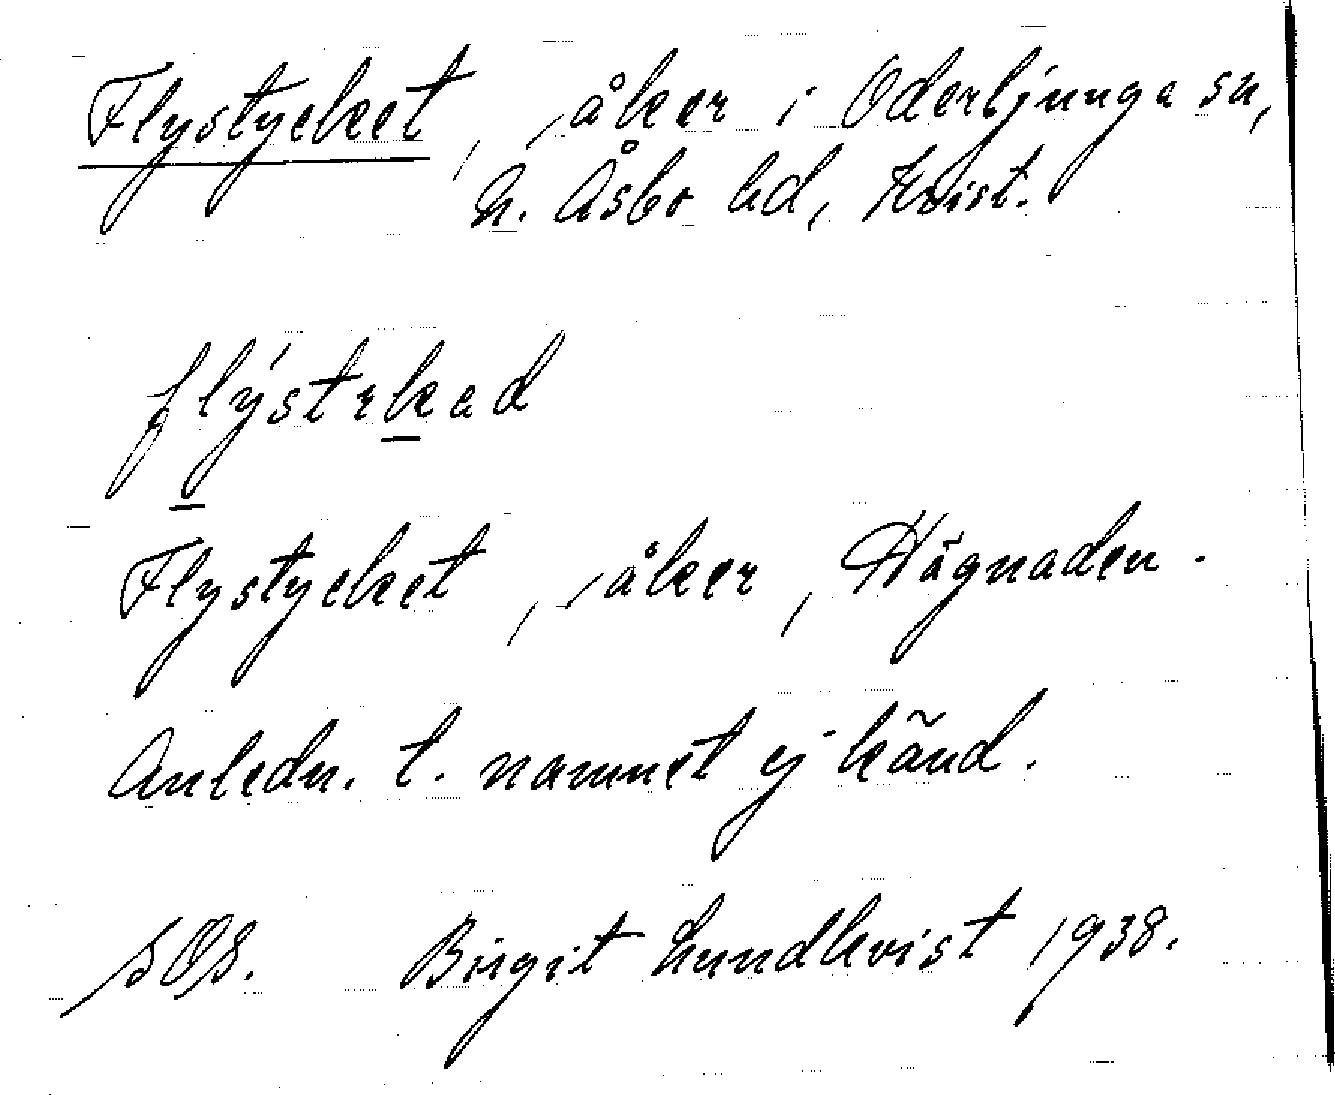 Flystycket, åker i Oderljunga sn,
N. Åsbo hd, Krist.
flýstekad
Flystycket, åker, Hägnaden.
Anledn. t. namnet ej känd.
Birgit Lundkvist 1938.